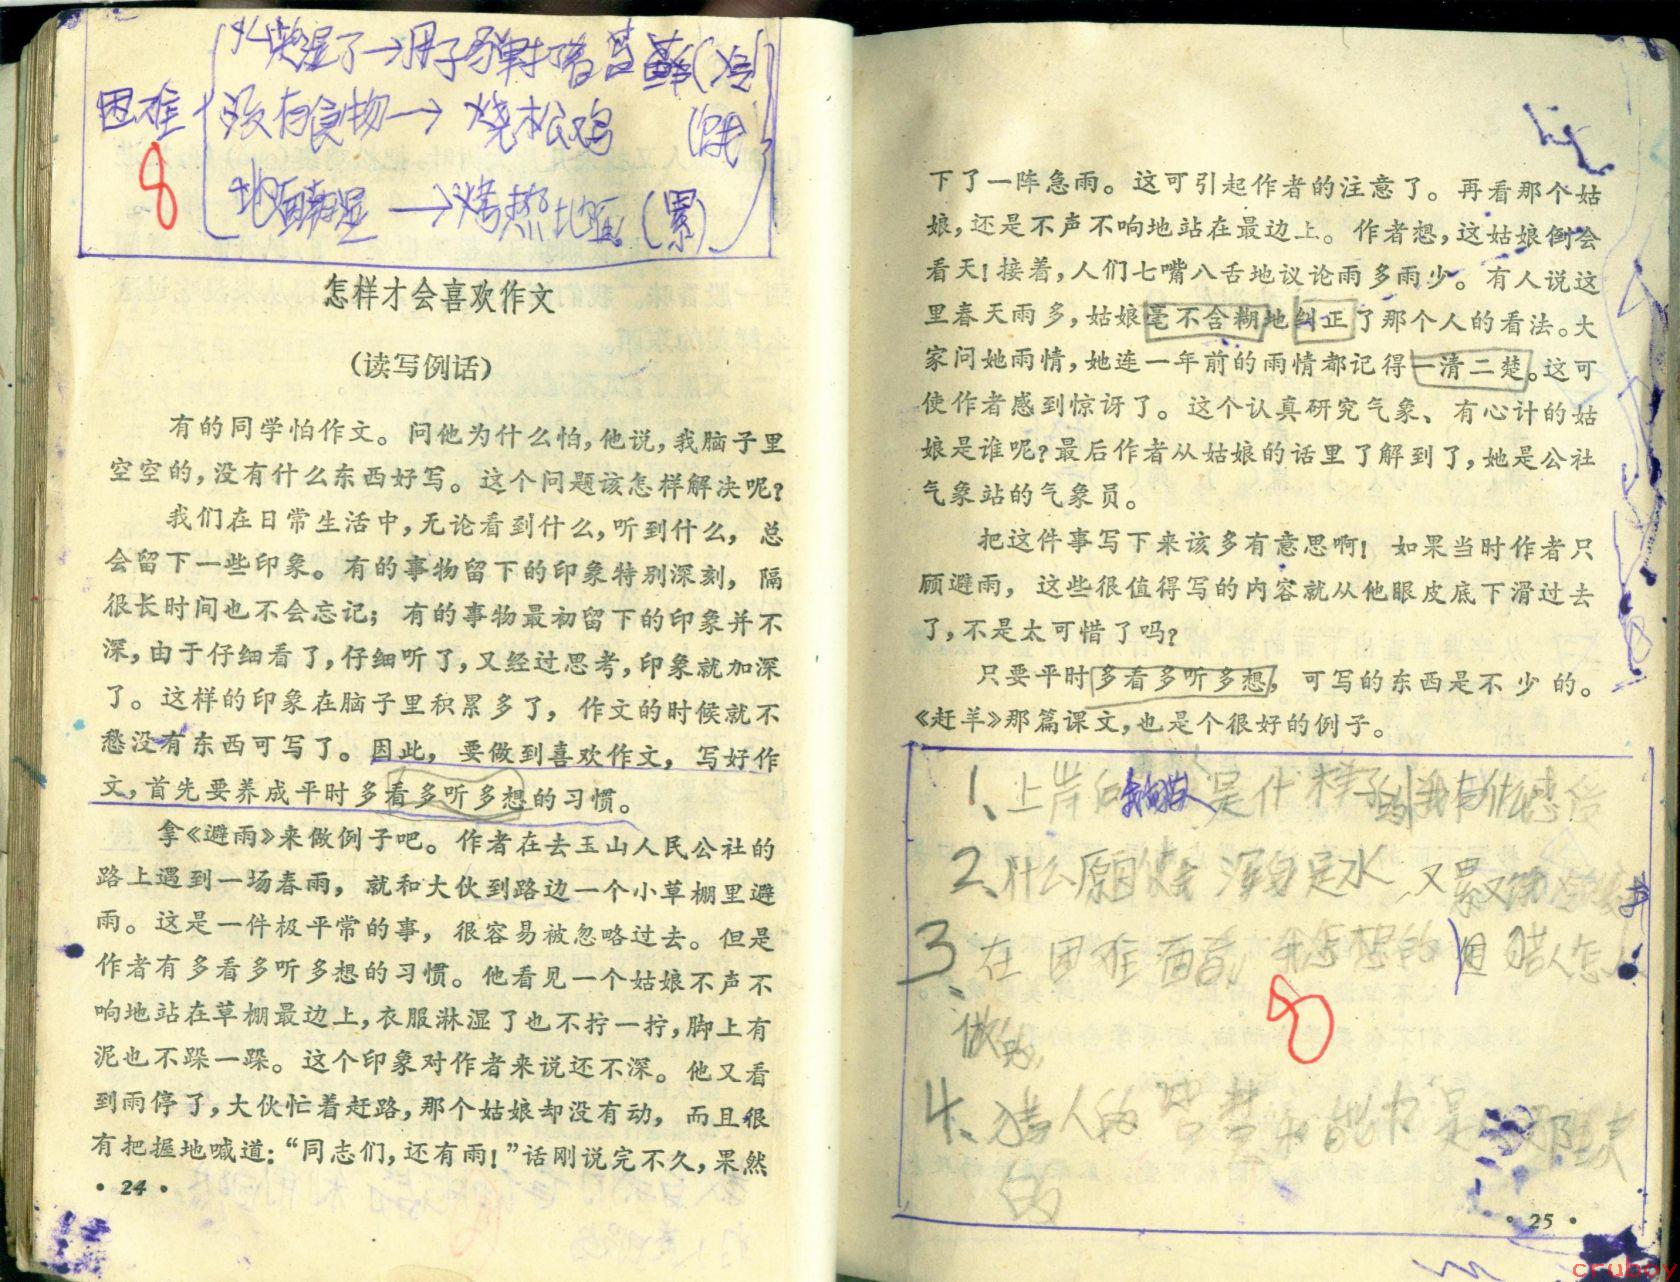 火柴湿了→用子弹打着苔藓(冷)
困难 没有食物→烧松鸡(饿)
8
地面潮湿→烤热地面(累)
怎样才会喜欢作文
(读写例话)
有的同学怕作文。问他为什么怕,他说,我脑子里
空空的,没有什么东西好写。这个问题该怎样解决呢?
我们在日常生活中,无论看到什么,听到什么,总
会留下一些印象。有的事物留下的印象特别深刻,隔
很长时间也不会忘记;有的事物最初留下的印象并不
深,由于仔细看了,仔细听了,又经过思考,印象就加深
了。这样的印象在脑子里积累多了,作文的时候就不
愁没有东西可写了。因此,要做到喜欢作文,写好作
文,首先要养成平时多看多听多想的习惯。
拿《避雨》来做例子吧。作者在去玉山人民公社的
路上遇到一场春雨,就和大伙到路边一个小草棚里避
雨。这是一件极平常的事,很容易被忽略过去。但是
作者有多看多听多想的习惯。他看见一个姑娘不声不
响地站在草棚最边上,衣服淋湿了也不拧一拧,脚上有
泥也不跺一跺。这个印象对作者来说还不深。他又看
到雨停了,大伙忙着赶路,那个姑娘却没有动,而且很
有把握地喊道:“同志们,还有雨!”话刚说完不久,果然
• 24 •
下了一阵急雨。这可引起作者的注意了。再看那个姑
娘,还是不声不响地站在最边上。作者想,这姑娘倒会
看天!接着,人们七嘴八舌地议论雨多雨少。有人说这
里春天雨多,姑娘毫不含糊地纠正了那个人的看法。大
家问她雨情,她连一年前的雨情都记得一清二楚。这可
使作者感到惊讶了。这个认真研究气象、有心计的姑
娘是谁呢?最后作者从姑娘的话里了解到了,她是公社
气象站的气象员。
把这件事写下来该多有意思啊!如果当时作者只
顾避雨,这些很值得写的内容就从他眼皮底下滑过去
了,不是太可惜了吗?
只要平时多看多听多想,可写的东西是不少的。
《赶羊》那篇课文,也是个很好的例子。
1、上岸后 是什 样子的我有什么感
2、什么原因使 浑身是水,又累又
3、在困难面前,我怎想的 猎人怎
8
做的,
4、猎人的智慧和能力是
的
• 25 •
cruboy